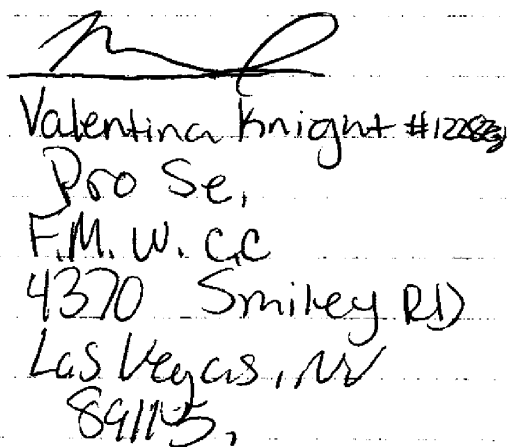 Valentina Knight
Pro Se,
F.M. W. C.C
4370 Smiley RD
Las Vegas, NV
89115,